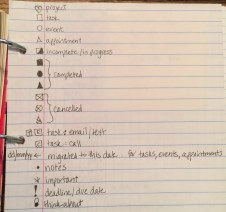 project
task
event
appointment
incomplete/in progress
completed
cancelled
task: email/text
task: call
dd/mm/yy ← migrated to this date for tasks, events, appointments
• notes
* important
! deadline/due date
think about